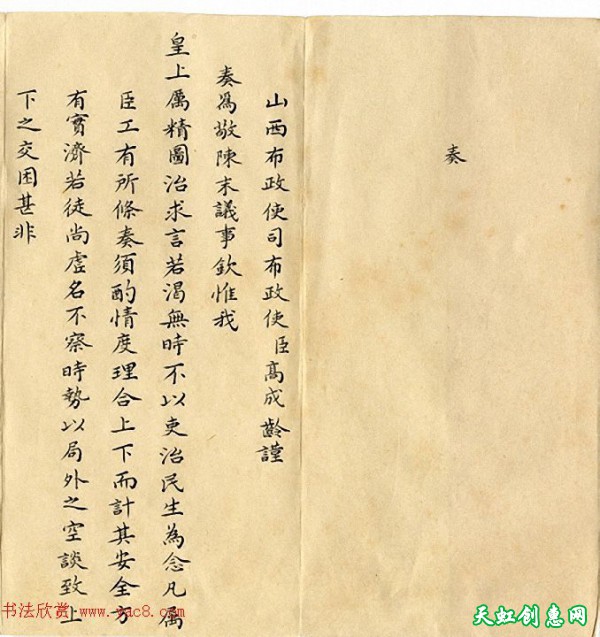 奏
山西布政使司布政使臣高成齡謹
奏為敬陳末議事欽惟我
皇上厲精圖治求言若渴無時不以吏治民生為念凡属
臣工有所條奏須酌情度理合上下而計其安全方
有實濟若徒尚虛名不察時勢以局外之空談致上
下之交困甚非
书法欣赏 www.yac8.com
天虹创惠网